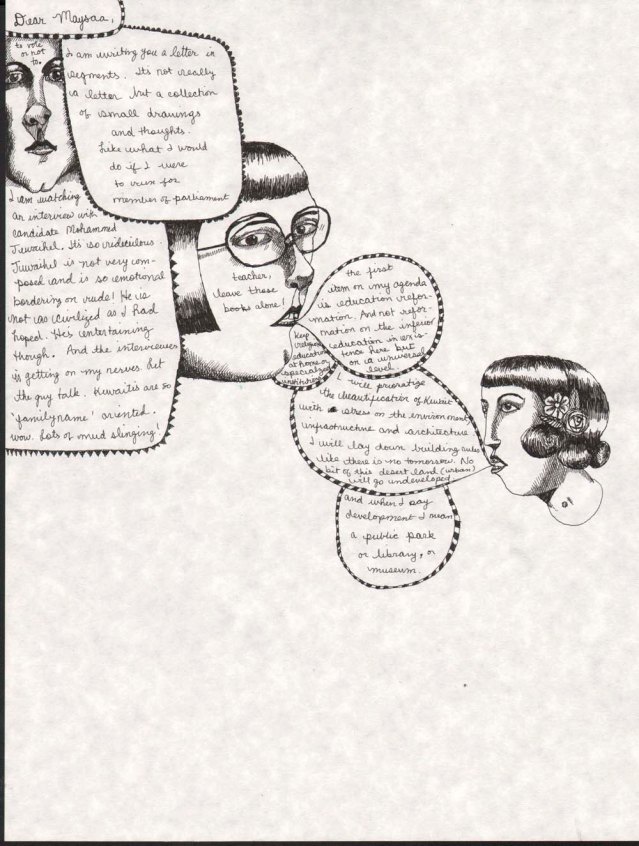 Dear Maysaa,
to vote
or not
to.
I am writing you a letter in
segments. Its not really
a letter but a collection
of small drawings
and thoughts.
Like what I would
do if I were
to run for
member of parliament
I am watching
an interview with
candidate Mohammed
Juwaihel. It's so rediculous.
Juwaihel is not very com-
posed and is so emotional
bordering on rude! He is
not as civilized as I had
hoped. He's entertaining
though. And the interviewer
is getting on my nerves. Let
the guy talk. Kuwaitis are so
'family name' oriented.
wow. Lots of mud slinging!
teacher,
leave those
books alone!
the first
item on my agenda
is education refor-
mation. And not refor-
mation on the inferior
education in exis-
tence here but
on a universal
level.
Keep
religious
education
at home or
specialized
institutions
I will prioratize
the beautification of Kuwait
with stress on the environment
infrastructure and architecture.
I will lay down building rules
like there is no tomorrow. No
bit of this desert land (urban)
will go undeveloped.
and when I say
development I mean
a public park
or library, or
museum.